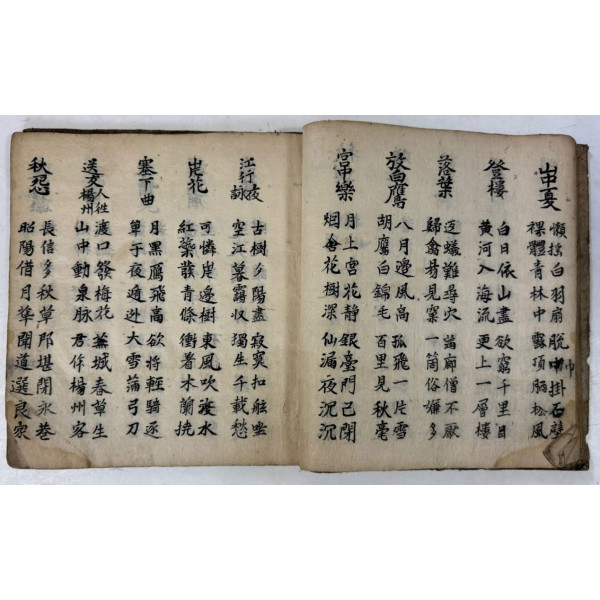 山中夏
懶搖白羽扇 脫巾掛石壁
裸體青林中 露頂洒松風
登樓
白日依山盡 欲窮千里目
黃河入海流 更上一層樓
落葉
返蟻難尋穴 滿廊僧不厭
歸禽易見窠 一箇俗嫌多
放白鷹
八月邊風高 孤飛一片雪
胡鷹白錦毛 百里見秋毫
宮中樂
月上宮花靜 銀臺門已閉
烟含花樹深 仙漏夜沉沉
江行夜詠
古樹夕陽盡 寂寞扣舷坐
空江暮霧収 獨生千載愁
岸花
可憐岸邊樹 東風吹渡水
紅蘂發青條 衝着木蘭撓
塞下曲
月黑鴈飛高 欲將輕騎逐
單于夜遁逃 大雪滿弓刀
送友人往楊州
渡口發梅花 蕪城春草生
山中動泉脉 君作楊州客
秋怨
長信多秋草 那堪閉永巷
昭陽借月華 聞道選良家